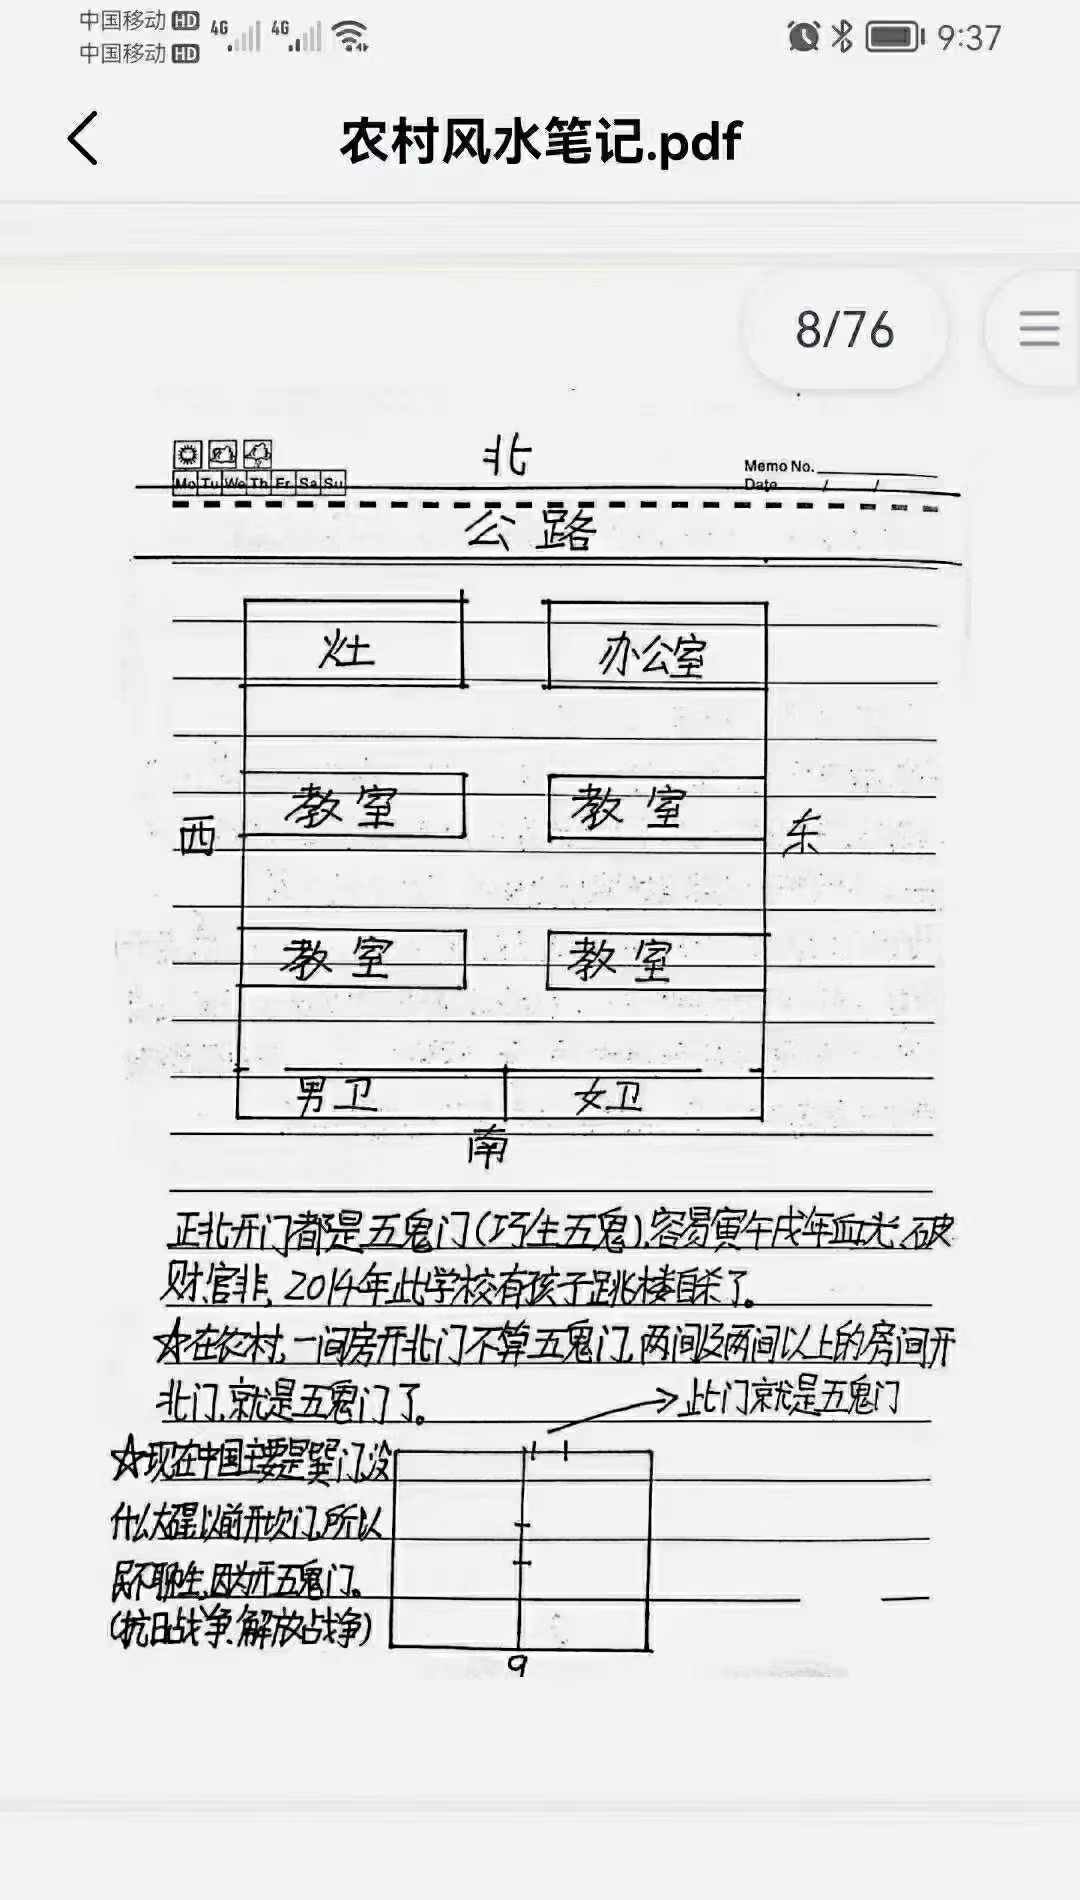 中国移动 HD 4G 4G 9:37
中国移动 HD
农村风水笔记.pdf
8/76
北
Memo No.
Mo Tu We Th Fr Sa Su
Date / /
公路
灶 办公室
教室 教室
西 东
教室 教室
男卫 女卫
南
正北开门都是五鬼门(巧生五鬼),容易寅午戌年血光、破
财、官非,2014年此学校有孩子跳楼自杀了。
☆在农村,一间房开北门不算五鬼门,两间及两间以上的房间开
北门,就是五鬼门了。
此门就是五鬼门
☆现在中国主要是巽门,没
什么大碍,以前开坎门,所以
民不聊生,因为开五鬼门。
(抗日战争、解放战争)
9